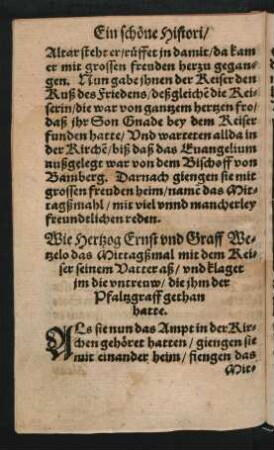 Ein schöne Histori/
Altar steht er/ rüffet jn damit/ da kam
er mit grossen freuden herzu gegan-
gen. Nun gabe jhnen der Keiser den
Kuß des Friedens/ deßgleichē die Kei-
serin/ die war von gantzem hertzen fro/
daß jhr Son Gnade bey dem Keiser
funden hatte/ Vnd warteten allda in
der Kirchē/ biß daß das Euangelium
außgelegt war von dem Bischoff von
Bamberg. Darnach giengen sie mit
grossen freuden heim/ namē das Mit-
tagßmahl/ mit viel vnnd mancherley
freundtlichen reden.
Wie Hertzog Ernst vnd Graff We-
tzelo das Mittagßmal mit dem Kei-
ser seinem Vatter aß/ vnd klaget
jm die vntreuw/ die jhm der
Pfaltzgraff gethan
hatte.
ALs sie nun das Ampt in der Kir-
chen gehöret hatten/ giengen sie
mit einander heim/ fiengen das
Mit-